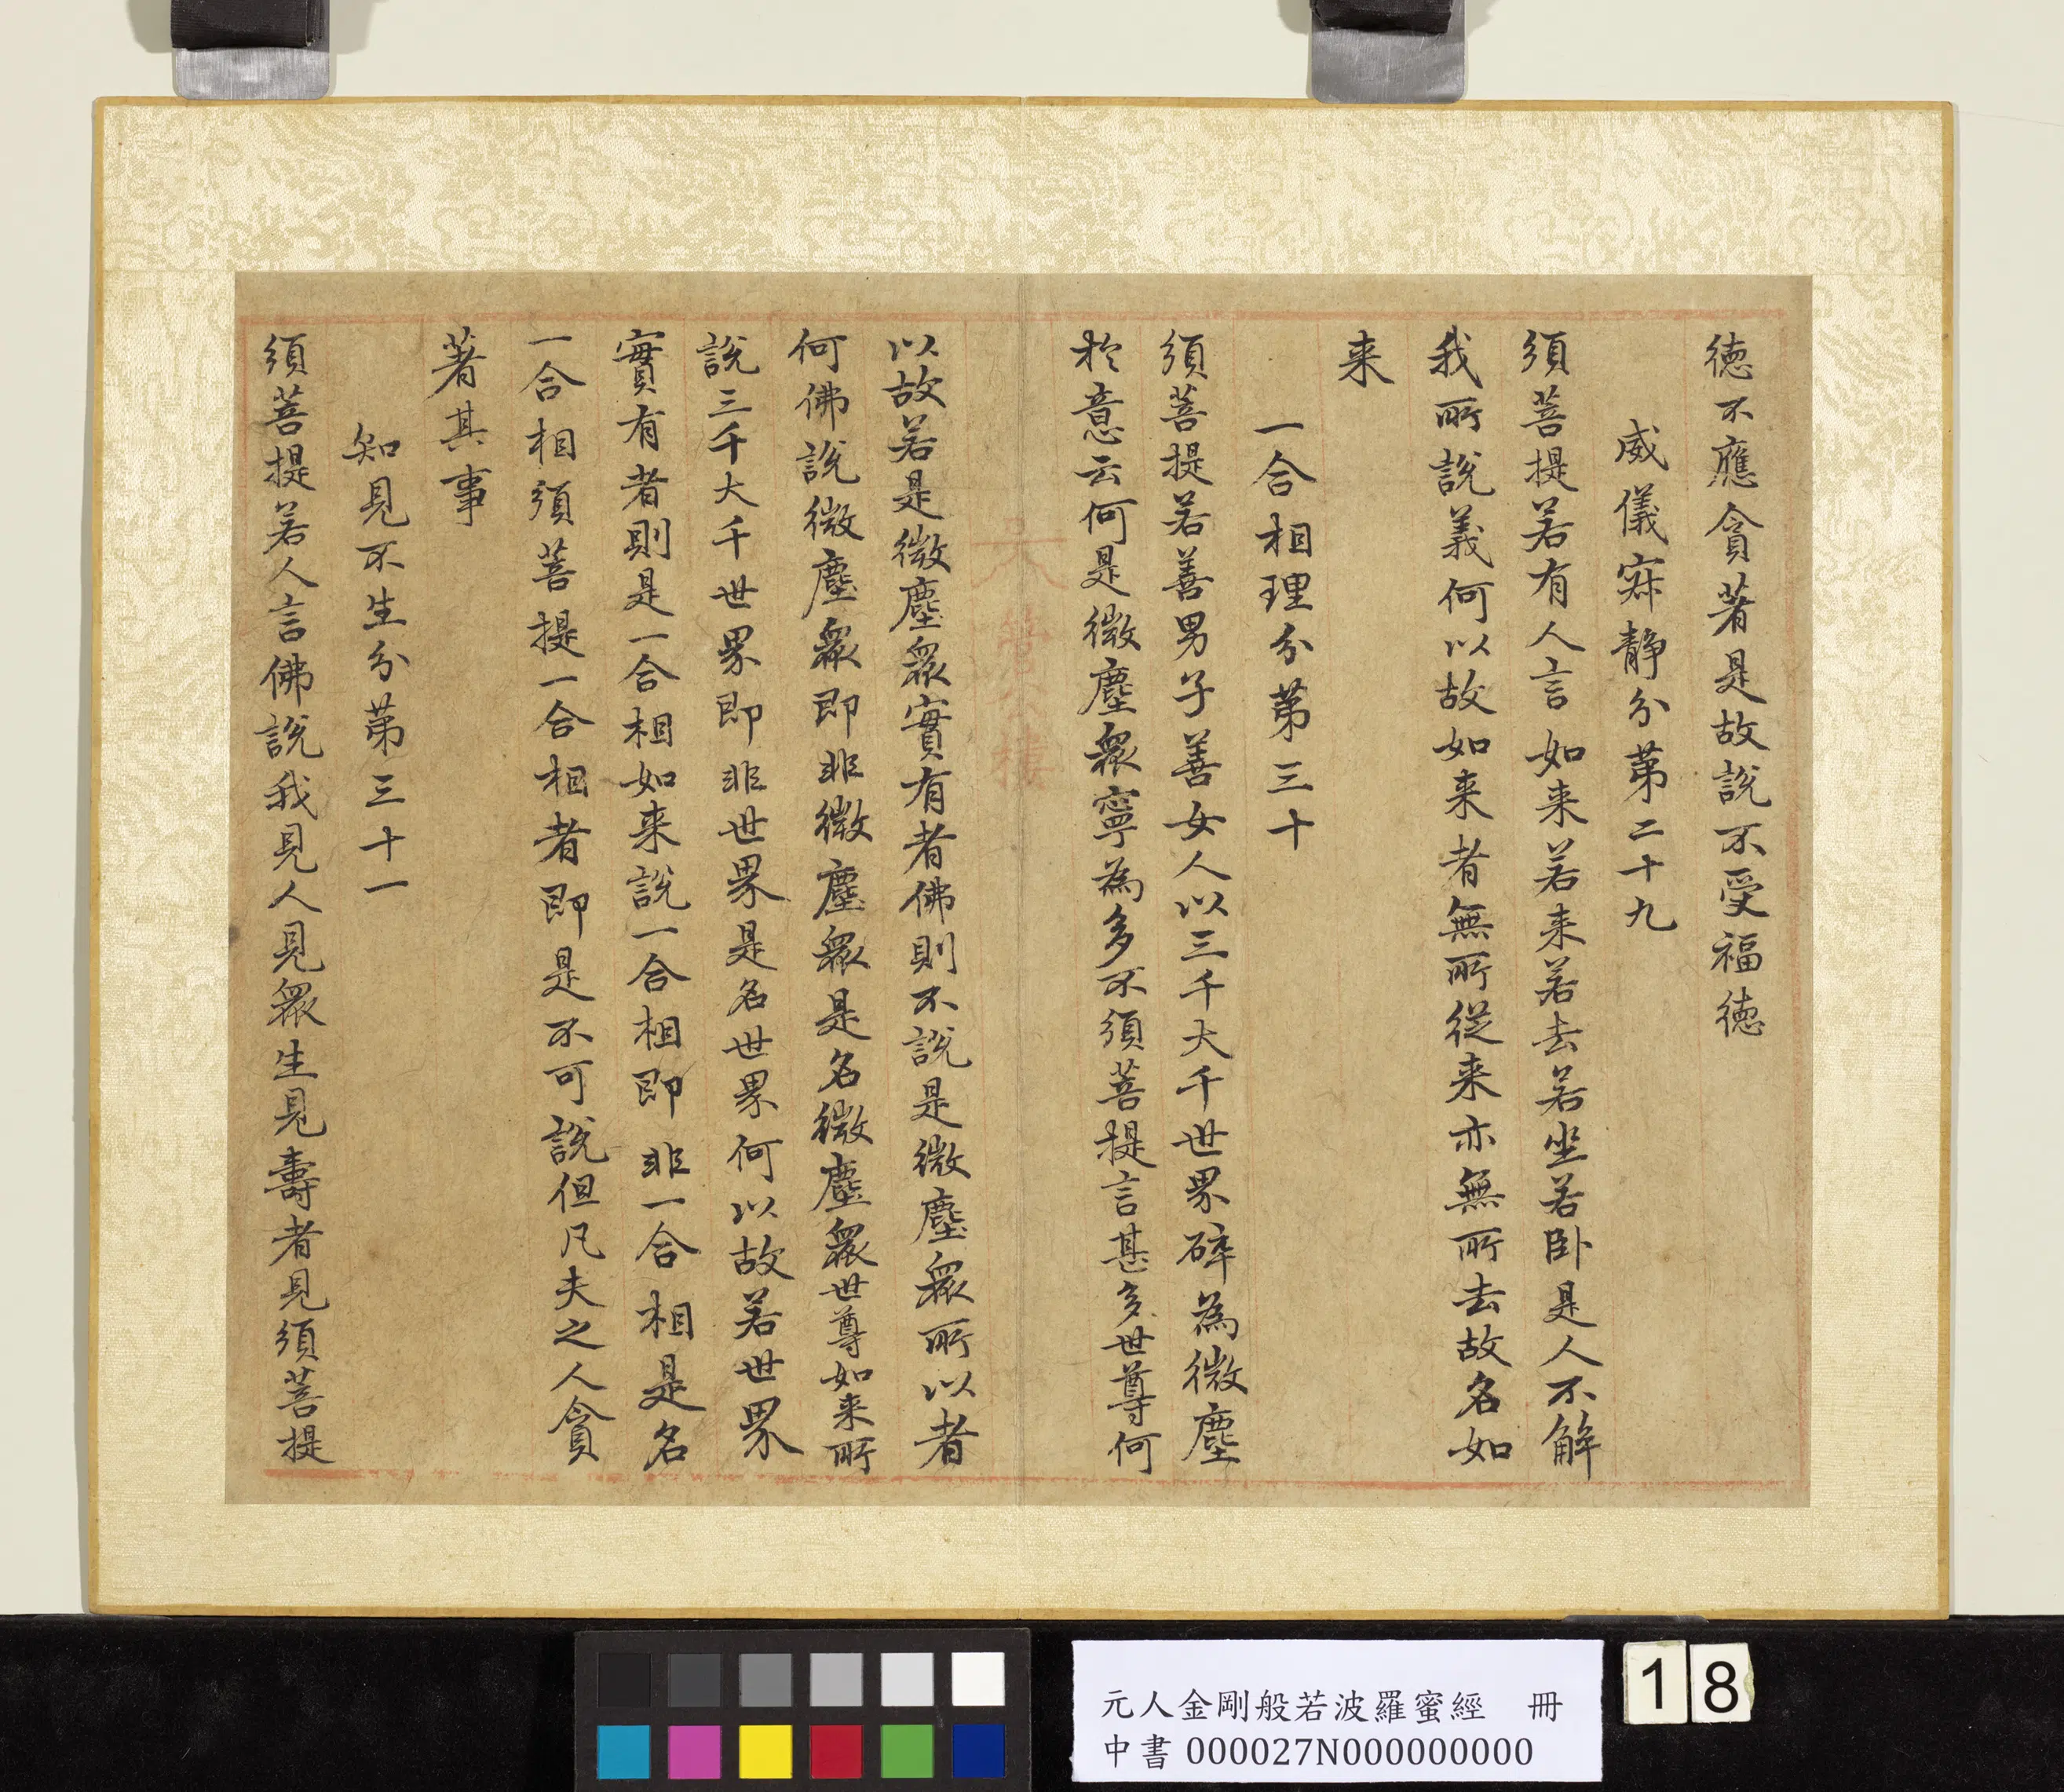 德不應貪著是故說不受福德
威儀寂靜分第二十九
須菩提若有人言如来若来若去若坐若卧是人不解
我所說義何以故如来者無所從来亦無所去故名如
来
一合相理分第三十
須菩提若善男子善女人以三千大千世界碎為微塵
於意云何是微塵眾寧為多不須菩提言甚多世尊何
以故若是微塵眾實有者佛則不說是微塵眾所以者
何佛說微塵眾即非微塵眾是名微塵眾世尊如来所
說三千大千世界即非世界是名世界何以故若世界
實有者則是一合相如来說一合相即非一合相是名
一合相須菩提一合相者即是不可說但凡夫之人貪
著其事
知見不生分第三十一
須菩提若人言佛說我見人見眾生見壽者見須菩提
元人金剛般若波羅蜜經 冊
中書 000027N000000000
18